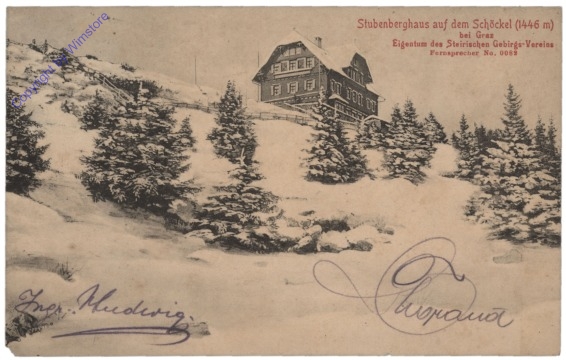 Stubenberghaus auf dem Schöckel (1446 m)
bei Graz
Eigentum des Steirischen Gebirgs-Vereins
Fernsprecher No. 0068
Copyright by Wimstore
Ingr. Hudwig.